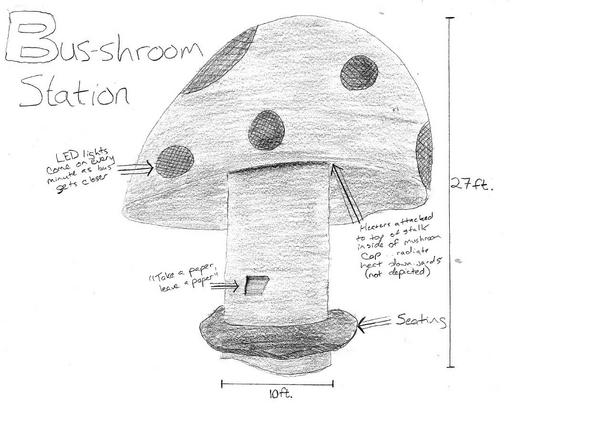 Bus-shroom
Station
LED lights
come on every
minute as bus
gets closer
27ft.
Heaters attached
to top of stalk
inside of mushroom
cap. radiate
heat downwards
(not depicted)
"Take a paper,
leave a paper"
Seating
10ft.